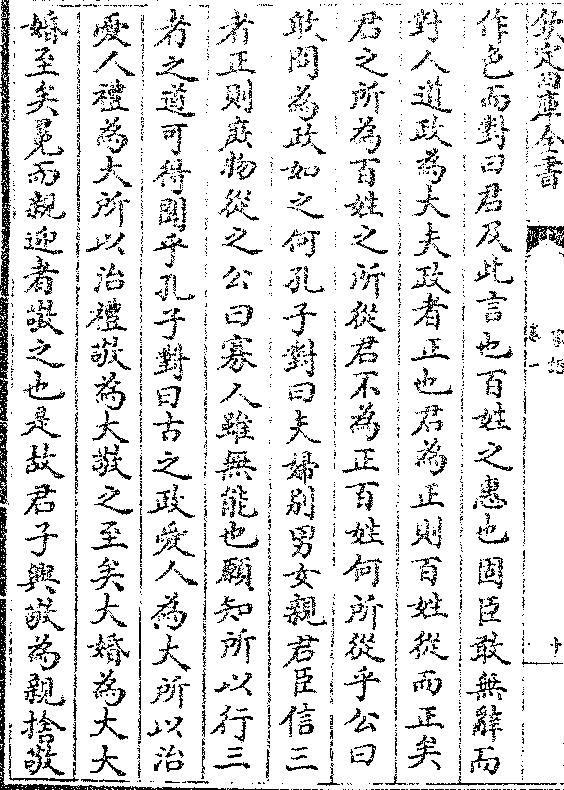 欽定四庫全書
家語
卷一
十
作色而對曰君及此言也百姓之惠也固臣敢無辭而
對人道政為大夫政者正也君為正則百姓從而正矣
君之所為百姓之所從君不為正百姓何所從乎公曰
敢問為政如之何孔子對曰夫婦别男女親君臣信三
者正則庶物從之公曰寡人雖無能也願知所以行三
者之道可得聞乎孔子對曰古之政愛人為大所以治
愛人禮為大所以治禮敬為大敬之至矣大婚為大大
婚至矣冕而親迎者敬之也是故君子興敬為親捨敬